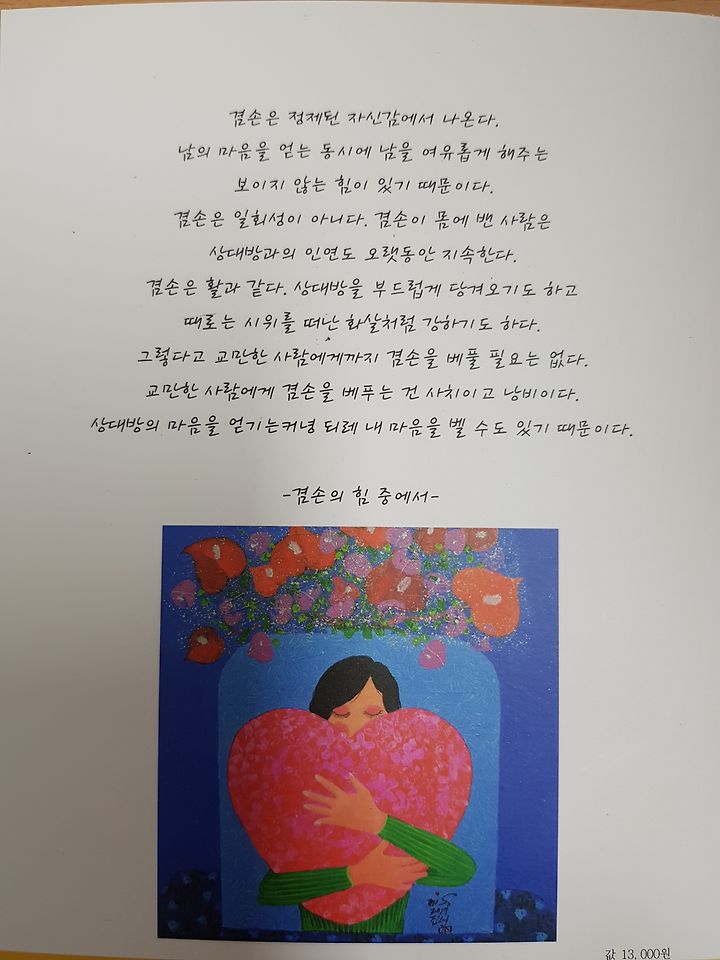 겸손은 정제된 자신감에서 나온다.
남의 마음을 얻는 동시에 남을 여유롭게 해주는
보이지 않는 힘이 있기 때문이다.
겸손은 일회성이 아니다. 겸손이 몸에 밴 사람은
상대방과의 인연도 오랫동안 지속한다.
겸손은 활과 같다. 상대방을 부드럽게 당겨오기도 하고
때로는 시위를 떠난 화살처럼 강하기도 하다.
그렇다고 교만한 사람에게까지 겸손을 베풀 필요는 없다.
교만한 사람에게 겸손을 베푸는 건 사치이고 낭비이다.
상대방의 마음을 얻기는커녕 되레 내 마음을 벨 수도 있기 때문이다.
-겸손의 힘 중에서-
값 13,000원